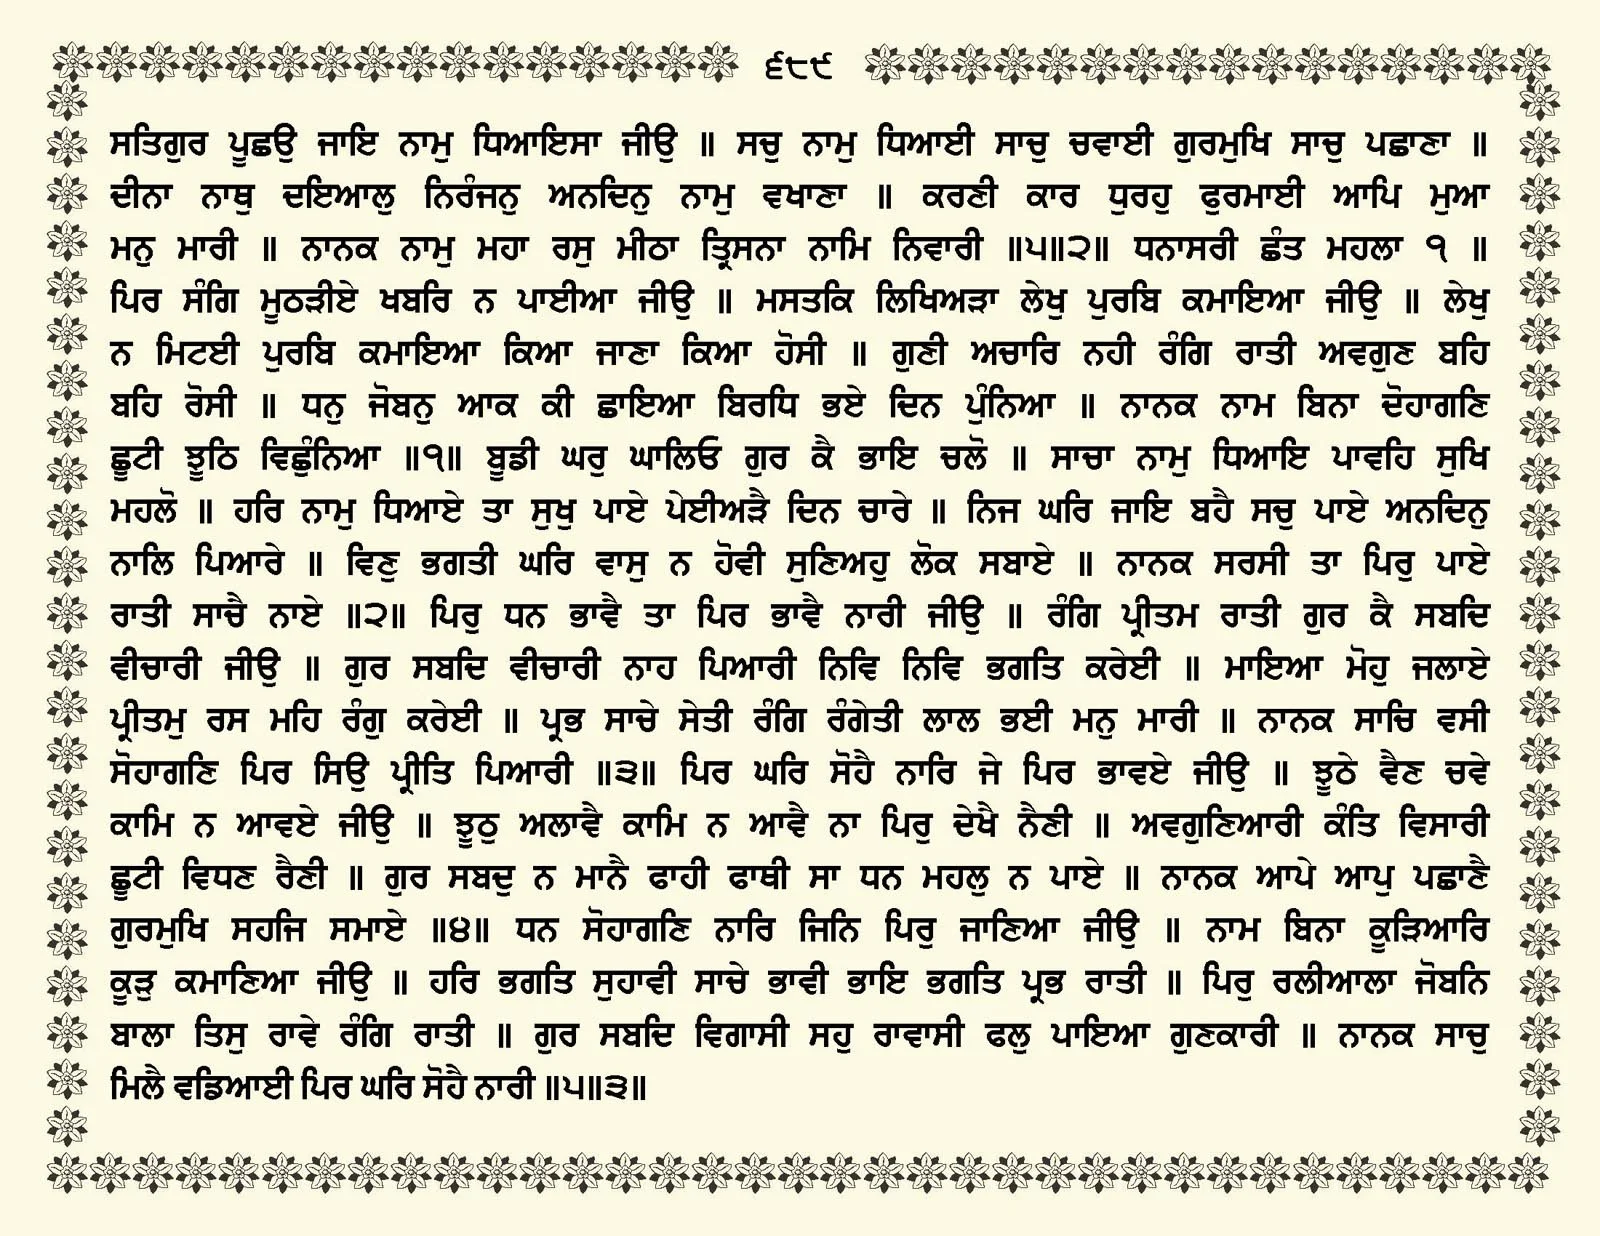 ੬੮੯
ਸਤਿਗੁਰ ਪੂਛਉ ਜਾਇ ਨਾਮੁ ਧਿਆਇਸਾ ਜੀਉ ॥ ਸਚੁ ਨਾਮੁ ਧਿਆਈ ਸਾਚੁ ਚਵਾਈ ਗੁਰਮੁਖਿ ਸਾਚੁ ਪਛਾਣਾ ॥
ਦੀਨਾ ਨਾਥੁ ਦਇਆਲੁ ਨਿਰੰਜਨੁ ਅਨਦਿਨੁ ਨਾਮੁ ਵਖਾਣਾ ॥ ਕਰਣੀ ਕਾਰ ਧੁਰਹੁ ਫੁਰਮਾਈ ਆਪਿ ਮੁਆ
ਮਨੁ ਮਾਰੀ ॥ ਨਾਨਕ ਨਾਮੁ ਮਹਾ ਰਸੁ ਮੀਠਾ ਤ੍ਰਿਸਨਾ ਨਾਮਿ ਨਿਵਾਰੀ ॥੫॥੨॥ ਧਨਾਸਰੀ ਛੰਤ ਮਹਲਾ ੧ ॥
ਪਿਰ ਸੰਗਿ ਮੂਠੜੀਏ ਖਬਰਿ ਨ ਪਾਈਆ ਜੀਉ ॥ ਮਸਤਕਿ ਲਿਖਿਅੜਾ ਲੇਖੁ ਪੁਰਬਿ ਕਮਾਇਆ ਜੀਉ ॥ ਲੇਖੁ
ਨ ਮਿਟਈ ਪੁਰਬਿ ਕਮਾਇਆ ਕਿਆ ਜਾਣਾ ਕਿਆ ਹੋਸੀ ॥ ਗੁਣੀ ਅਚਾਰਿ ਨਹੀ ਰੰਗਿ ਰਾਤੀ ਅਵਗੁਣ ਬਹਿ
ਬਹਿ ਰੋਸੀ ॥ ਧਨੁ ਜੋਬਨੁ ਆਕ ਕੀ ਛਾਇਆ ਬਿਰਧਿ ਭਏ ਦਿਨ ਪੁੰਨਿਆ ॥ ਨਾਨਕ ਨਾਮ ਬਿਨਾ ਦੋਹਾਗਣਿ
ਛੂਟੀ ਝੂਠਿ ਵਿਛੁੰਨਿਆ ॥੧॥ ਬੂਡੀ ਘਰੁ ਘਾਲਿਓ ਗੁਰ ਕੈ ਭਾਇ ਚਲੋ ॥ ਸਾਚਾ ਨਾਮੁ ਧਿਆਇ ਪਾਵਹਿ ਸੁਖਿ
ਮਹਲੋ ॥ ਹਰਿ ਨਾਮੁ ਧਿਆਏ ਤਾ ਸੁਖੁ ਪਾਏ ਪੇਈਅੜੈ ਦਿਨ ਚਾਰੇ ॥ ਨਿਜ ਘਰਿ ਜਾਇ ਬਹੈ ਸਚੁ ਪਾਏ ਅਨਦਿਨੁ
ਨਾਲਿ ਪਿਆਰੇ ॥ ਵਿਣੁ ਭਗਤੀ ਘਰਿ ਵਾਸੁ ਨ ਹੋਵੀ ਸੁਣਿਅਹੁ ਲੋਕ ਸਬਾਏ ॥ ਨਾਨਕ ਸਰਸੀ ਤਾ ਪਿਰੁ ਪਾਏ
ਰਾਤੀ ਸਾਚੈ ਨਾਏ ॥੨॥ ਪਿਰੁ ਧਨ ਭਾਵੈ ਤਾ ਪਿਰ ਭਾਵੈ ਨਾਰੀ ਜੀਉ ॥ ਰੰਗਿ ਪ੍ਰੀਤਮ ਰਾਤੀ ਗੁਰ ਕੈ ਸਬਦਿ
ਵੀਚਾਰੀ ਜੀਉ ॥ ਗੁਰ ਸਬਦਿ ਵੀਚਾਰੀ ਨਾਹ ਪਿਆਰੀ ਨਿਵਿ ਨਿਵਿ ਭਗਤਿ ਕਰੇਈ ॥ ਮਾਇਆ ਮੋਹੁ ਜਲਾਏ
ਪ੍ਰੀਤਮੁ ਰਸ ਮਹਿ ਰੰਗੁ ਕਰੇਈ ॥ ਪ੍ਰਭ ਸਾਚੇ ਸੇਤੀ ਰੰਗਿ ਰੰਗੇਤੀ ਲਾਲ ਭਈ ਮਨੁ ਮਾਰੀ ॥ ਨਾਨਕ ਸਾਚਿ ਵਸੀ
ਸੋਹਾਗਣਿ ਪਿਰ ਸਿਉ ਪ੍ਰੀਤਿ ਪਿਆਰੀ ॥੩॥ ਪਿਰ ਘਰਿ ਸੋਹੈ ਨਾਰਿ ਜੇ ਪਿਰ ਭਾਵਏ ਜੀਉ ॥ ਝੂਠੇ ਵੈਣ ਚਵੇ
ਕਾਮਿ ਨ ਆਵਏ ਜੀਉ ॥ ਝੂਠੁ ਅਲਾਵੈ ਕਾਮਿ ਨ ਆਵੈ ਨਾ ਪਿਰੁ ਦੇਖੈ ਨੈਣੀ ॥ ਅਵਗੁਣਿਆਰੀ ਕੰਤਿ ਵਿਸਾਰੀ
ਛੂਟੀ ਵਿਧਣ ਰੈਣੀ ॥ ਗੁਰ ਸਬਦੁ ਨ ਮਾਨੈ ਫਾਹੀ ਫਾਥੀ ਸਾ ਧਨ ਮਹਲੁ ਨ ਪਾਏ ॥ ਨਾਨਕ ਆਪੇ ਆਪੁ ਪਛਾਣੈ
ਗੁਰਮੁਖਿ ਸਹਜਿ ਸਮਾਏ ॥੪॥ ਧਨ ਸੋਹਾਗਣਿ ਨਾਰਿ ਜਿਨਿ ਪਿਰੁ ਜਾਣਿਆ ਜੀਉ ॥ ਨਾਮ ਬਿਨਾ ਕੂੜਿਆਰਿ
ਕੂੜੁ ਕਮਾਣਿਆ ਜੀਉ ॥ ਹਰਿ ਭਗਤਿ ਸੁਹਾਵੀ ਸਾਚੇ ਭਾਵੀ ਭਾਇ ਭਗਤਿ ਪ੍ਰਭ ਰਾਤੀ ॥ ਪਿਰੁ ਰਲੀਆਲਾ ਜੋਬਨਿ
ਬਾਲਾ ਤਿਸੁ ਰਾਵੇ ਰੰਗਿ ਰਾਤੀ ॥ ਗੁਰ ਸਬਦਿ ਵਿਗਾਸੀ ਸਹੁ ਰਾਵਾਸੀ ਫਲੁ ਪਾਇਆ ਗੁਣਕਾਰੀ ॥ ਨਾਨਕ ਸਾਚੁ
ਮਿਲੈ ਵਡਿਆਈ ਪਿਰ ਘਰਿ ਸੋਹੈ ਨਾਰੀ ॥੫॥੩॥